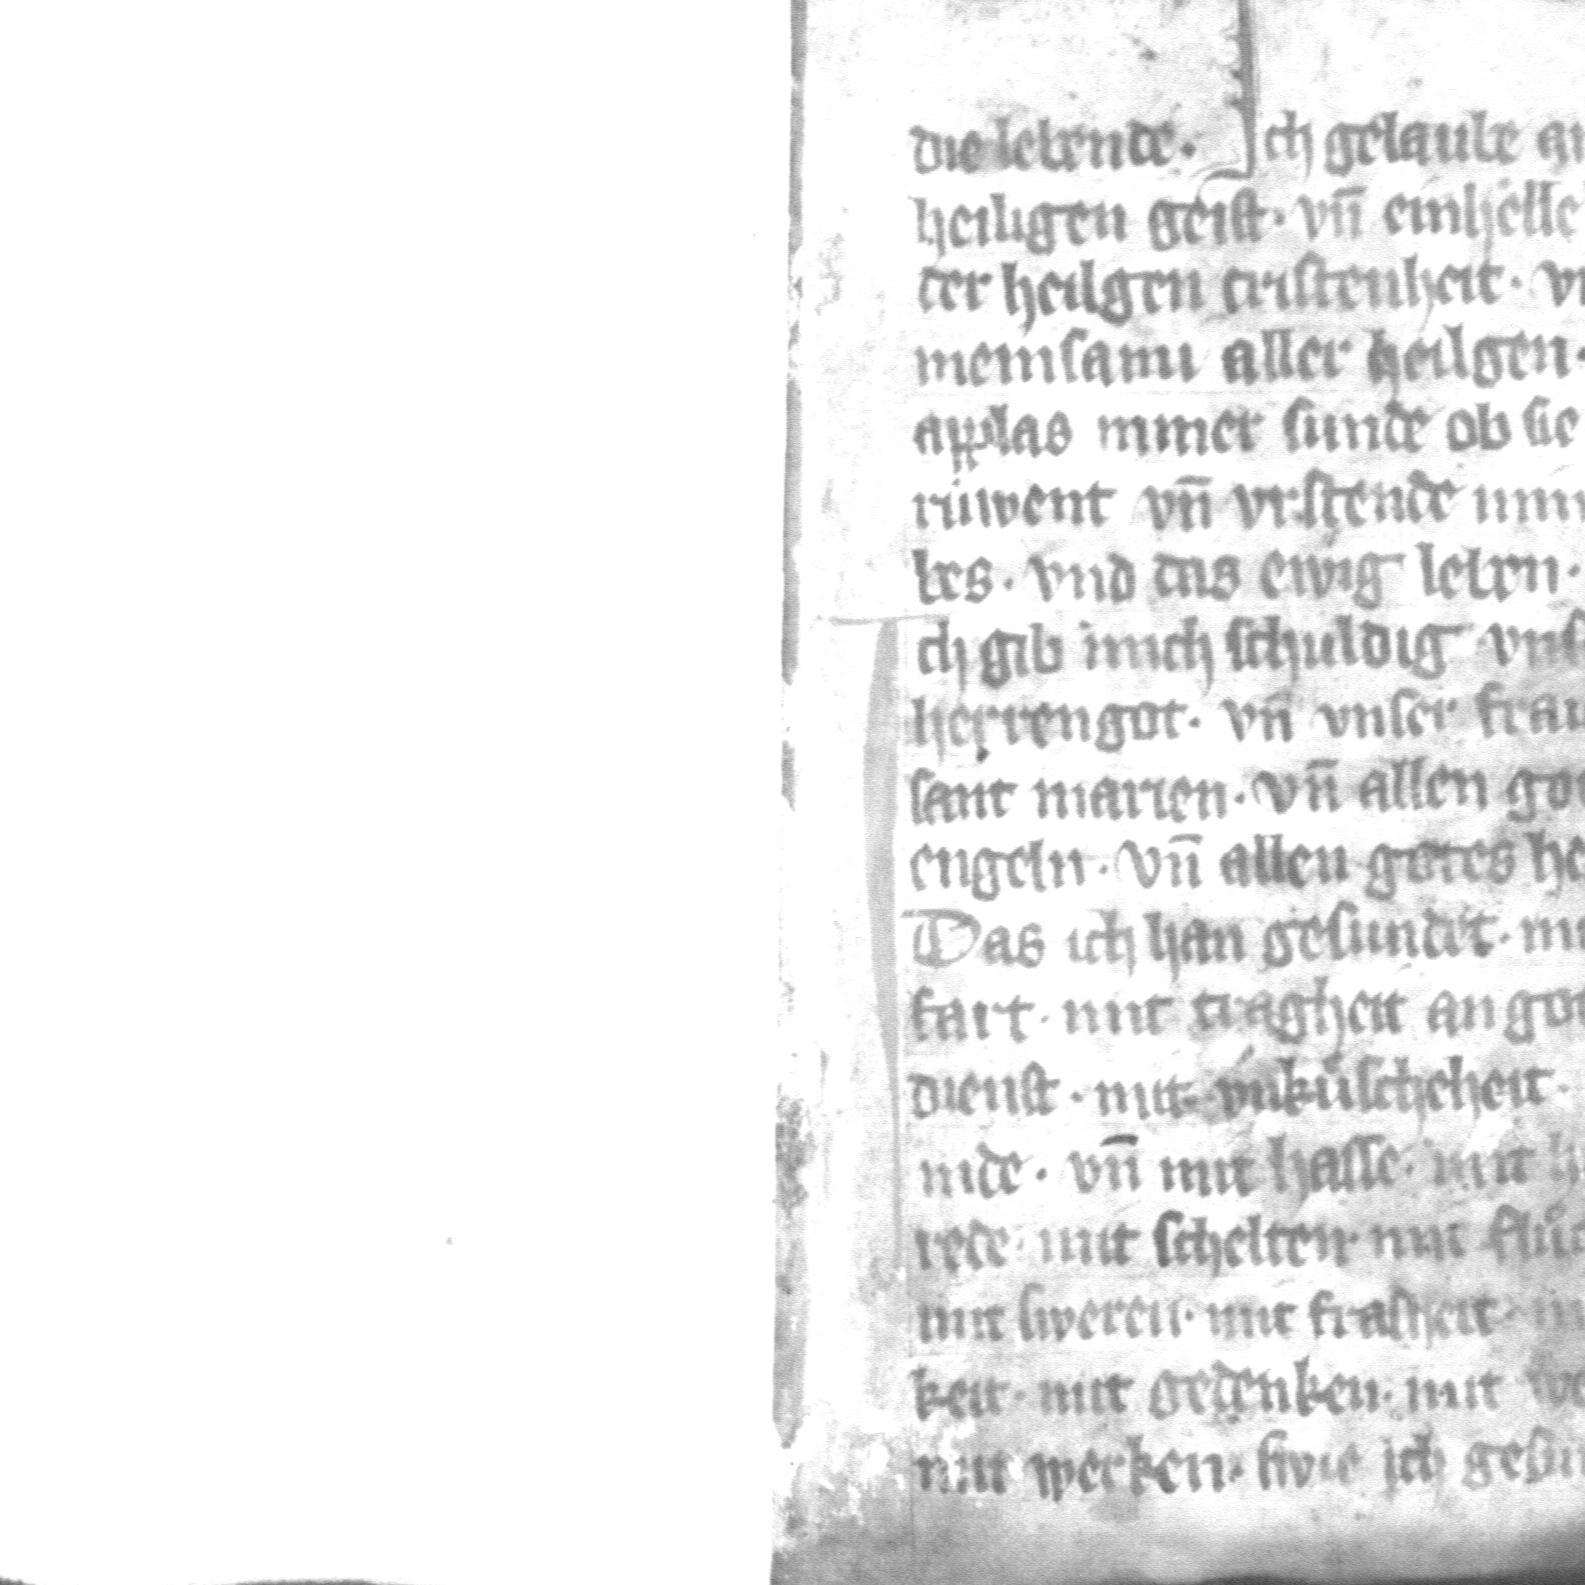 die lebende. Ich gelaube an
heiligen geist. vn̄ einhelle
der heilgen cristenheit. vn
meinsami aller heilgen.
applas miner sunde ob sie
rúwent vn̄ vrstende mins
bes. vnd das ewig leben.
Ich gib mich schuldig vns
herrengot. vn̄ vnser frau
sant marien. vn̄ allen got
engeln. vn̄ allen gotes he
Das ich han gesundet. mit
fart. mit tragheit an got
dienst. mit vnkúscheheit.
nide. vn̄ mit hasse. mit h
rede mit schelten mit flůc
mit sweren. mit frasheit. m
keit. mit gedenken. mit wo
mit werken. swie ich gesu